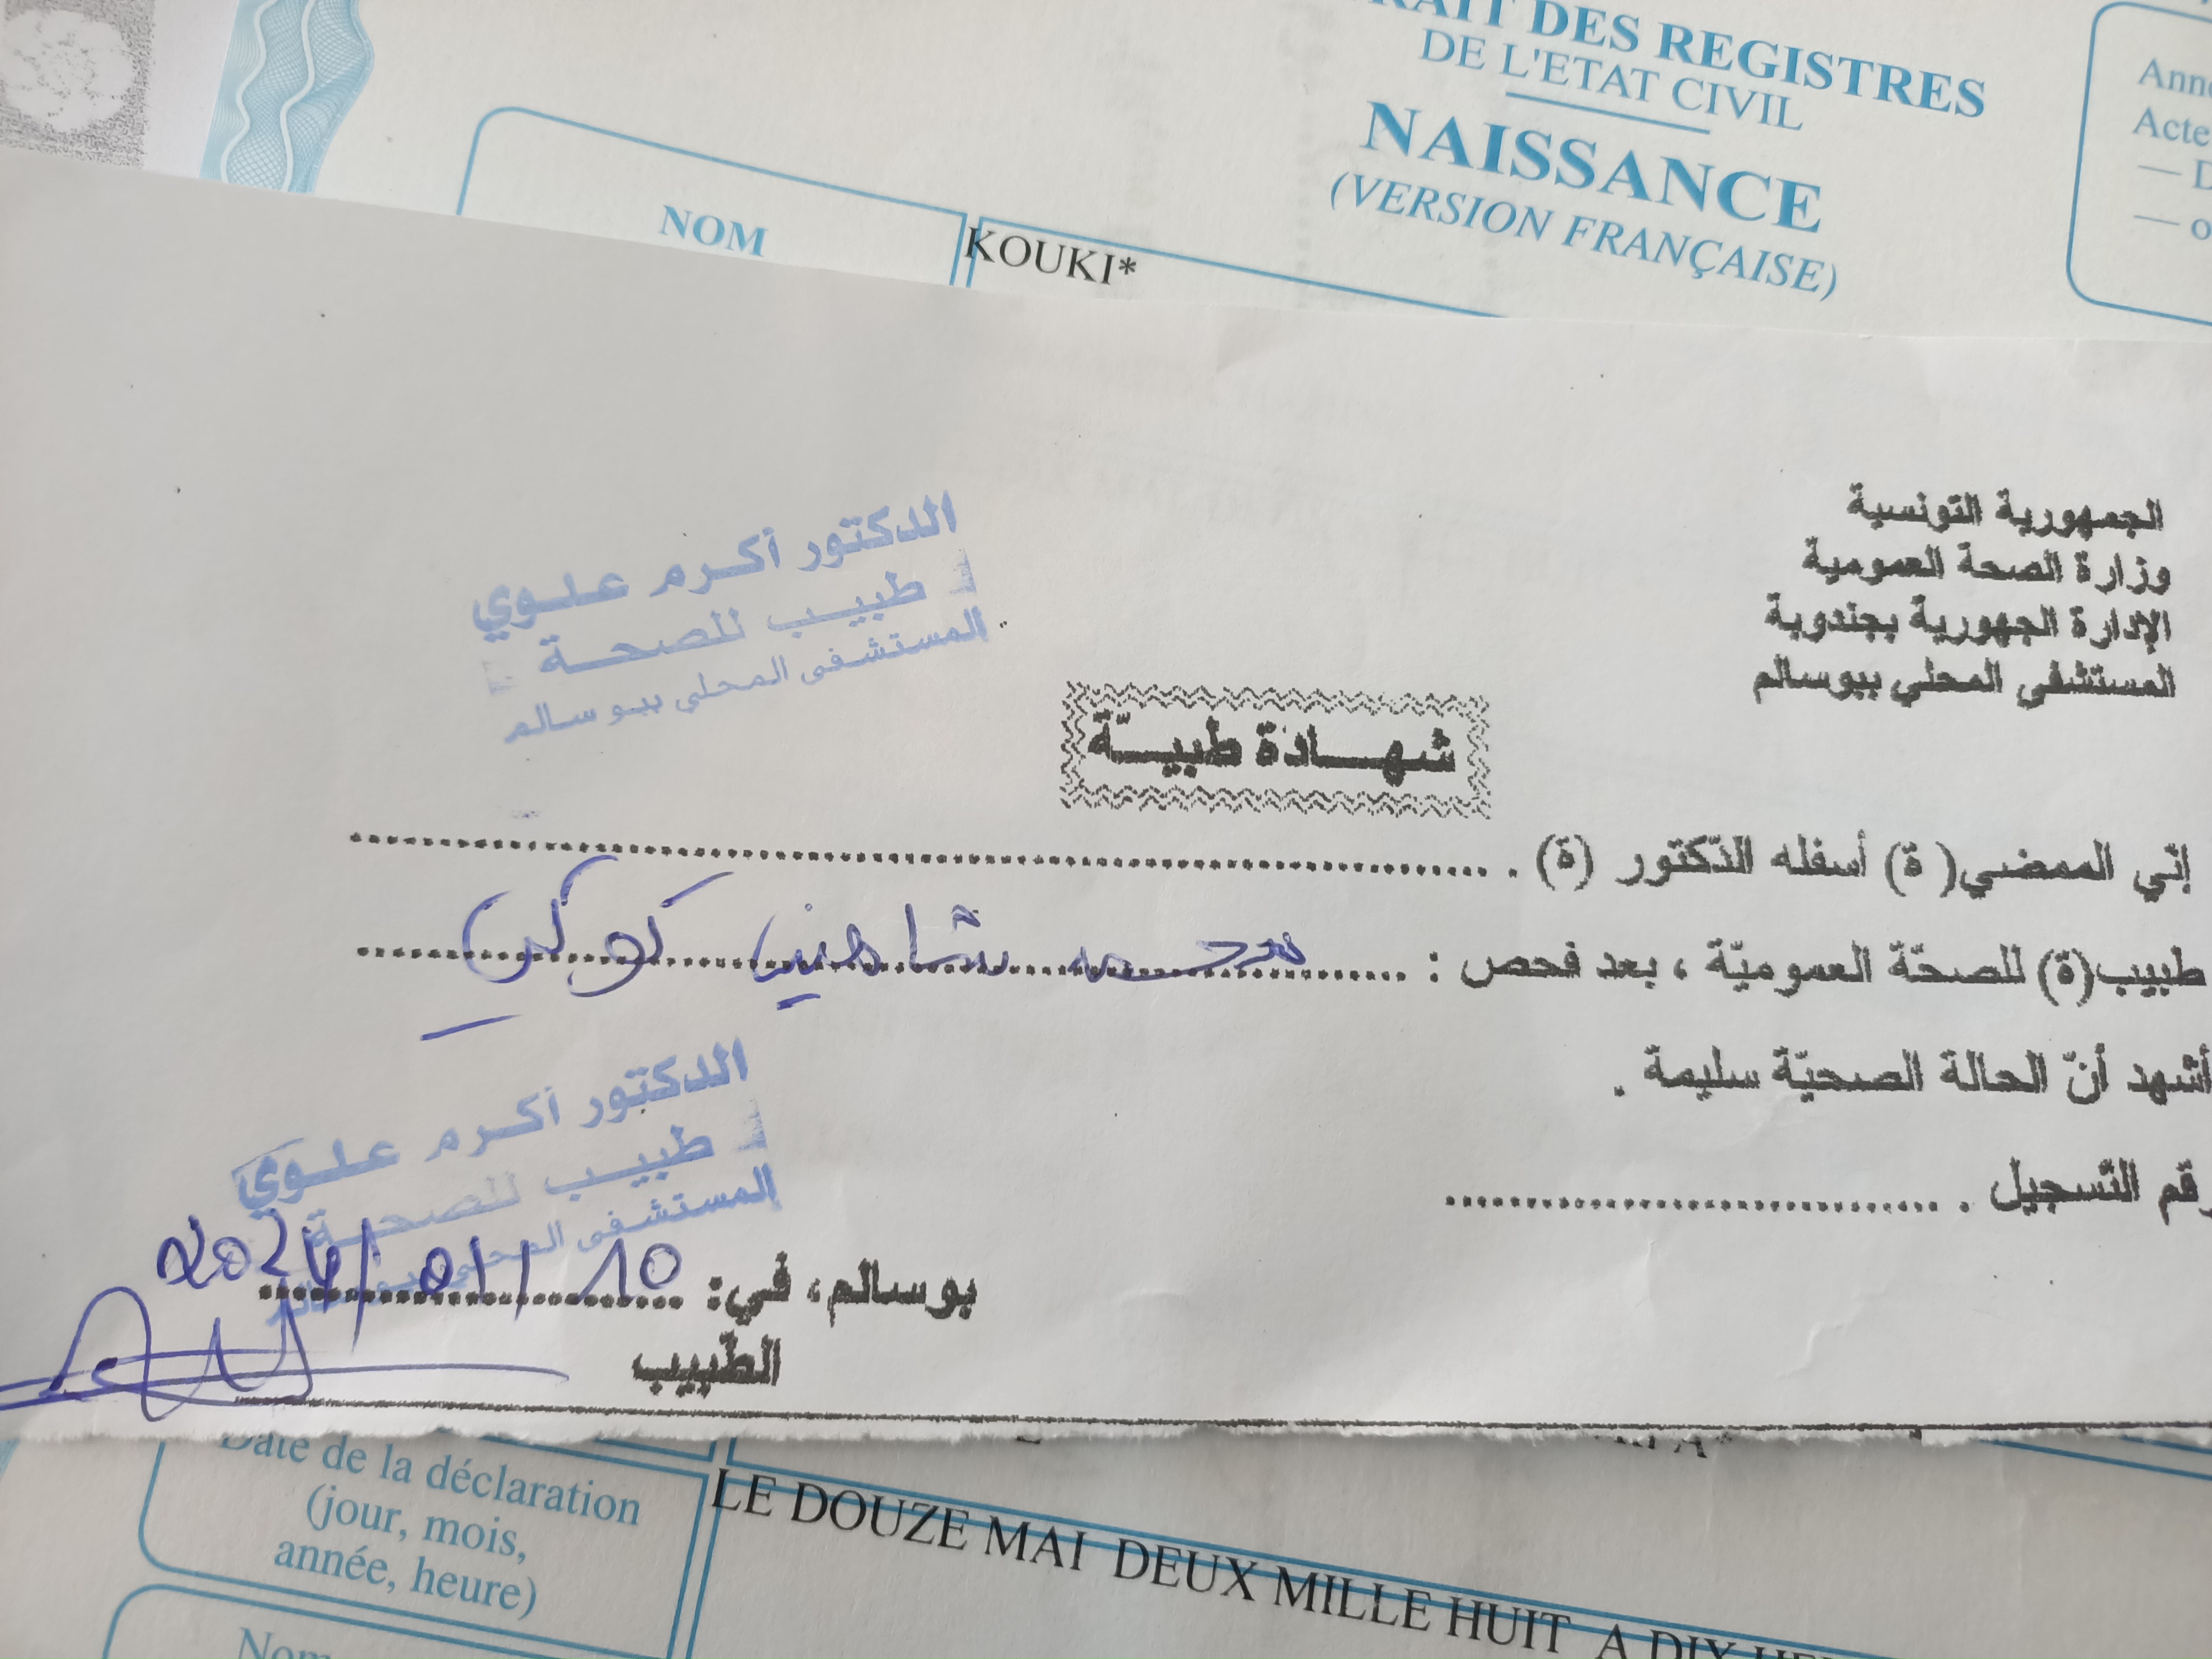 DES REGISTRES
DE L'ETAT CIVIL
NAISSANCE
(VERSION FRANÇAISE)
NOM
KOUKI*
الجمهورية التونسية
وزارة الصحة العمومية
الإدارة الجهورية بجندوبة
المستشفى المحلي ببوسالم
الدكتور أكرم علوي
طبيب للصحة
المستشفى المحلي ببو سالم
شهادة طبيّة
إنّي الممضي( ة) أسفله الدّكتور (ة) .
طبيب(ة) للصحّة العموميّة ، بعد فحص : محمد شاهين كوكي
أشهد أنّ الحالة الصحيّة سليمة .
رقم التّسجيل .
الدكتور أكرم علوي
طبيب للصحة
المستشفى المحلي ببو سالم
بوسالم، في: 10/01/2024
الطّبيب
Date de la déclaration
(jour, mois,
année, heure)
LE DOUZE MAI DEUX MILLE HUIT A DIX
Nom